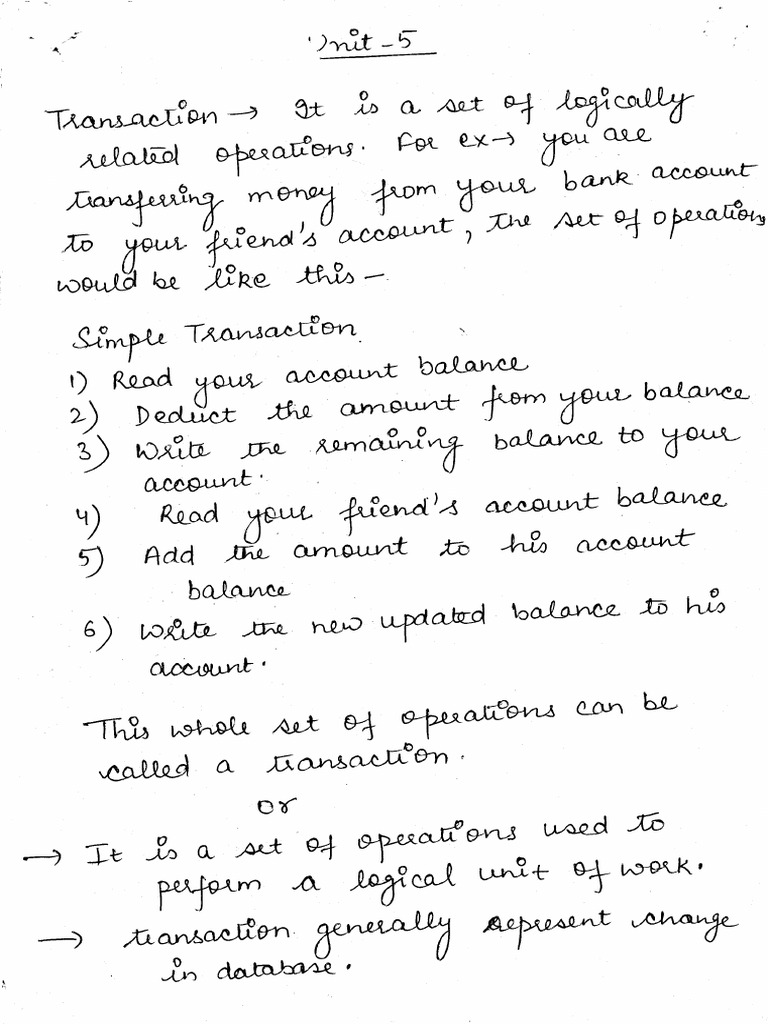 Unit - 5
Transaction → It is a set of logically
related operations. For ex → you are
transferring money from your bank account
to your friend's account, the set of operations
would be like this -
Simple Transaction
1) Read your account balance
2) Deduct the amount from your balance
3) Write the remaining balance to your
account.
4) Read your friend's account balance
5) Add the amount to his account
balance
6) Write the new updated balance to his
account.
This whole set of operations can be
called a transaction.
or
→ It is a set of operations used to
perform a logical unit of work.
→ transaction generally represent change
in database.